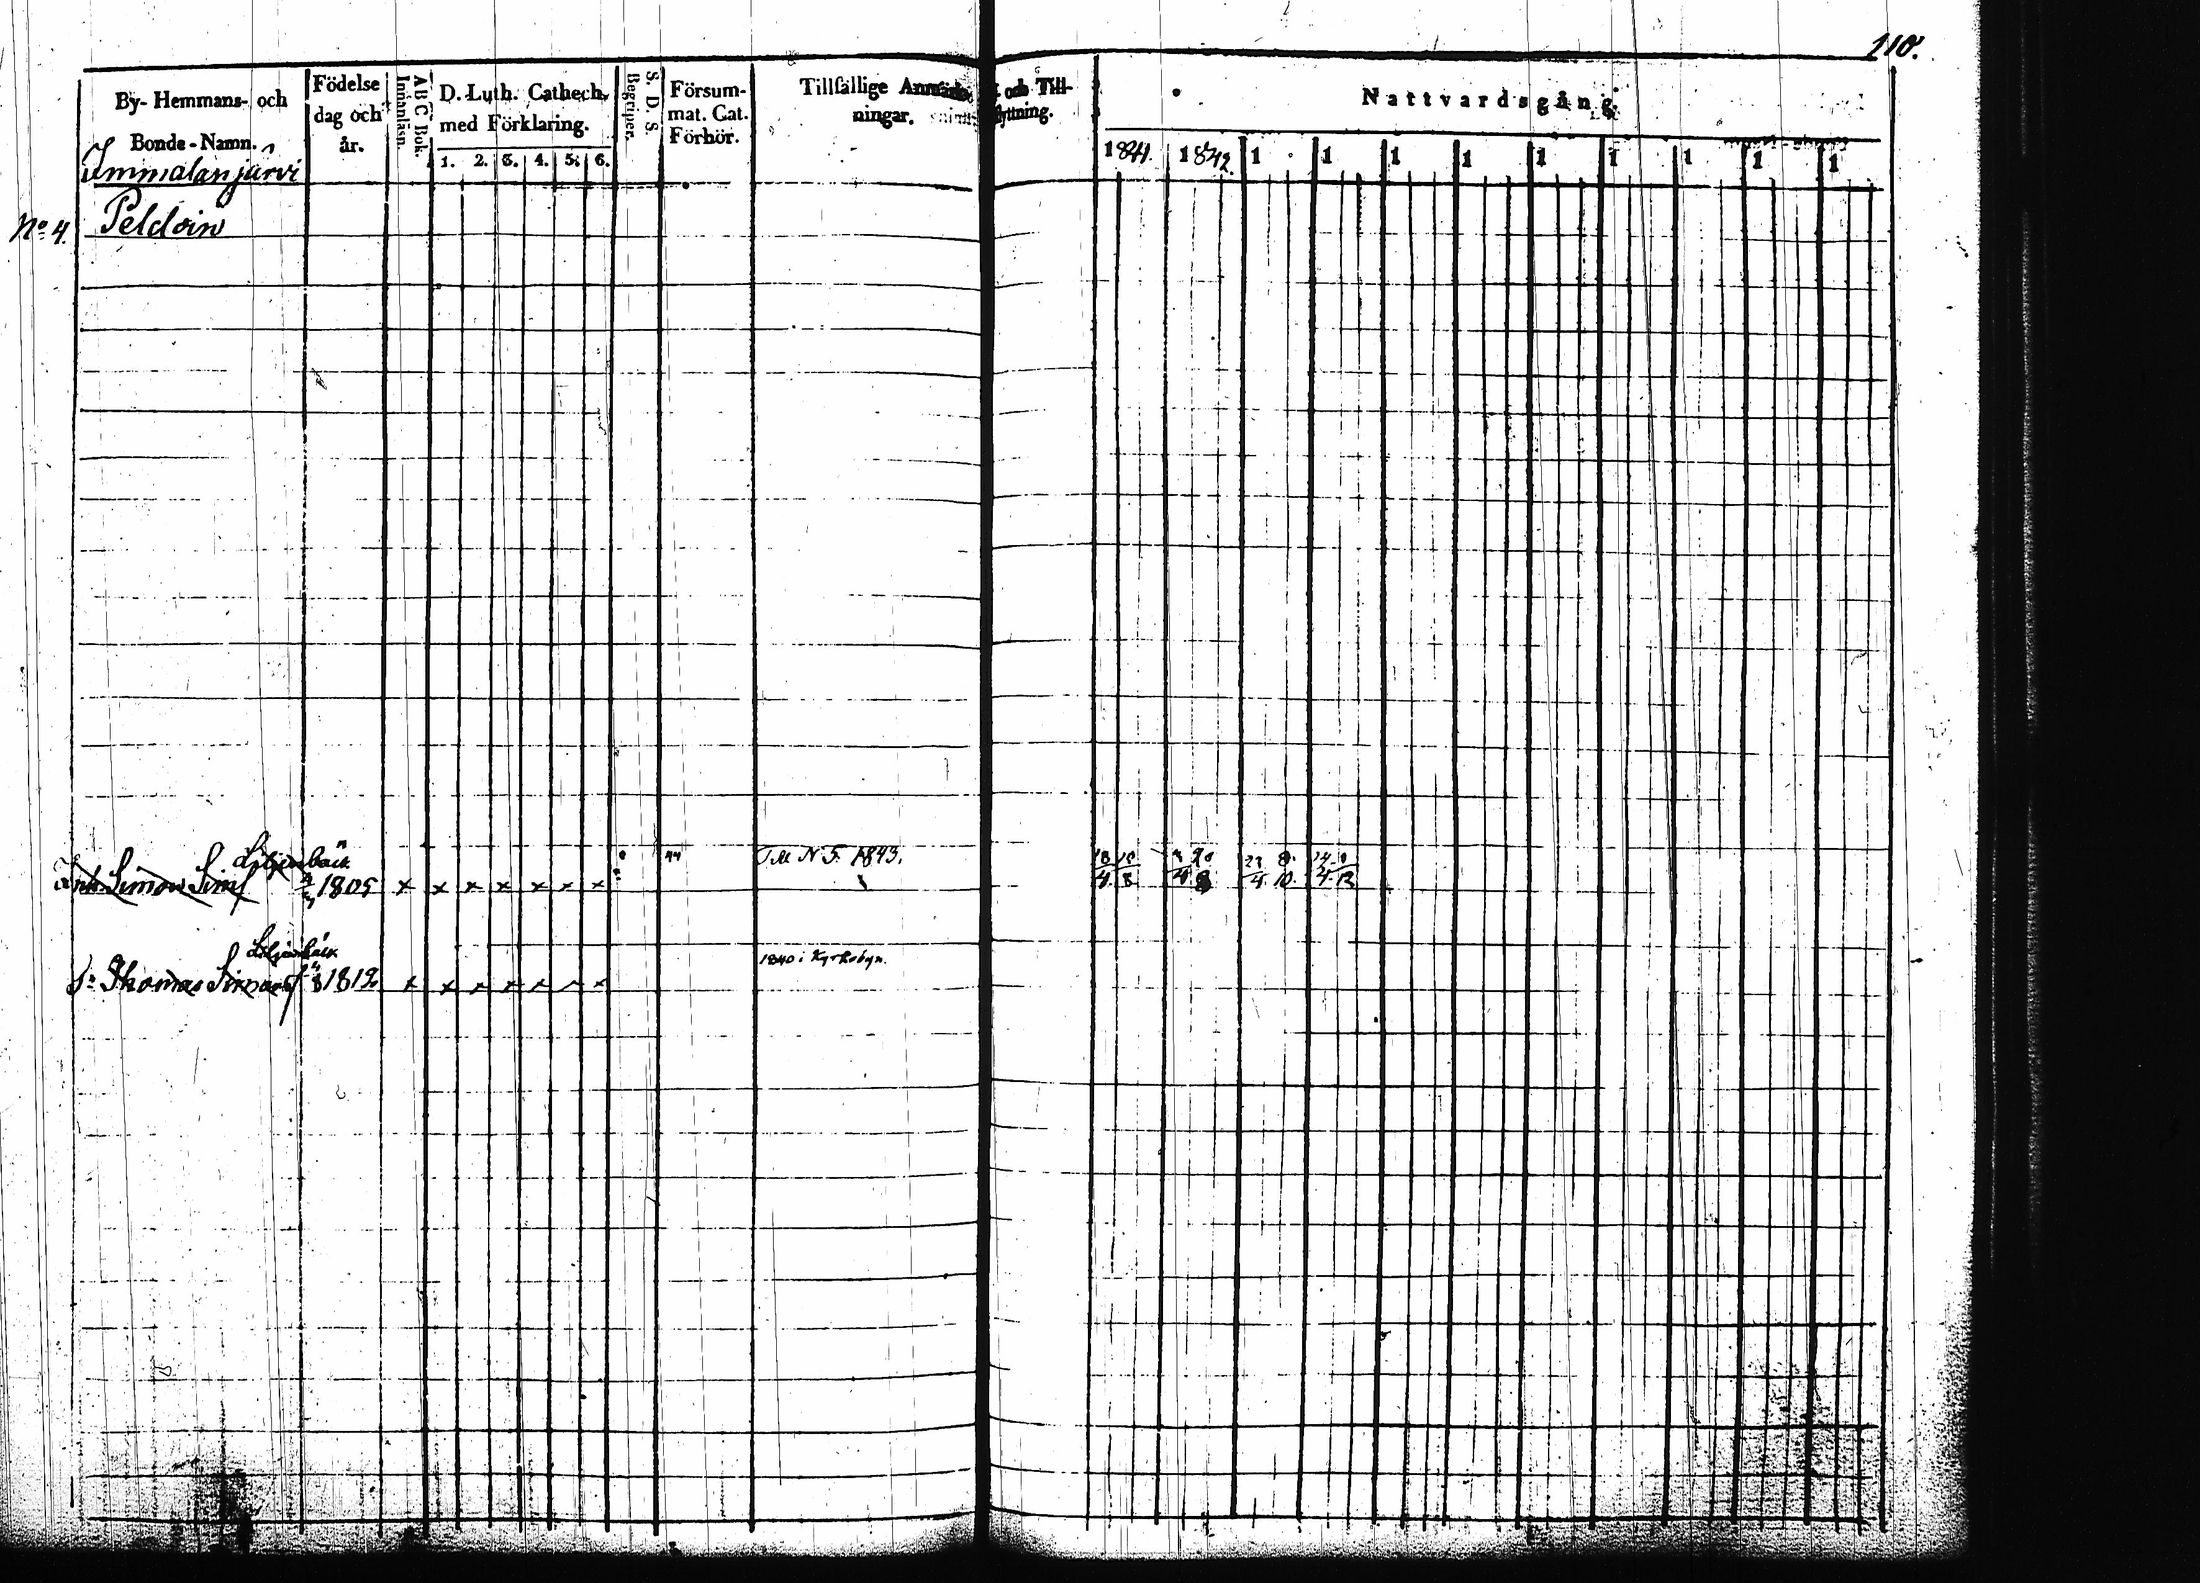 110.
By- Hemmans- och
Bonde-Namn.
Födelse
dag och
år.
ABC Bok.
Innanläsn.
D. Luth. Cathech.
med Förklaring.
1. 2. 3. 4. 5. 6.
S. D. S.
Begriper.
Försum-
mat. Cat.
Förhör.
Tillfällige Anmärk-
ningar,
och Till-
flyttning.
Nattvardsgång
1841. 1842. 1 1 1 1 1 1 1 1 1
Immalanjärvi
No 4. Peldoin
Liljenbäck
Simon Sims 1805 x x x x x x x
44
Till N 5. 1843.
Liljenbäck
Sn Thomas Simonss 1812 x x x x x x x
1840 i Kyrkobyn.